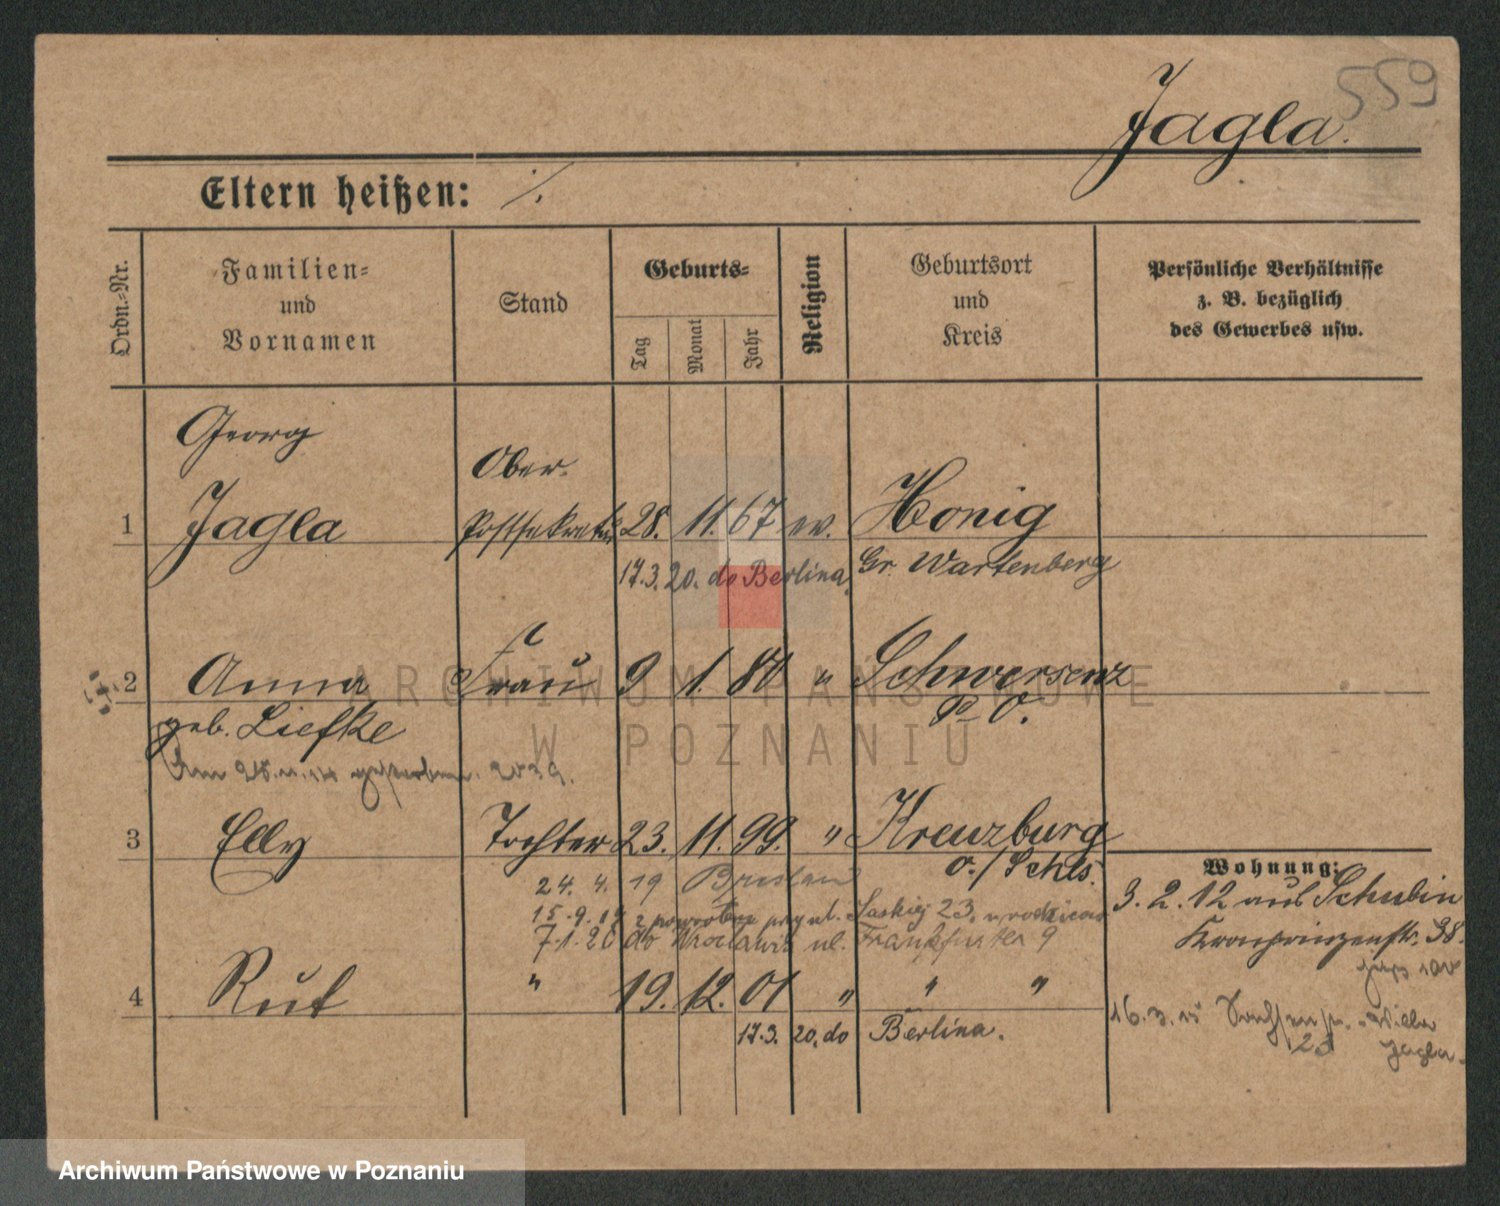 559
Jagla.
Eltern heißen: ·/.
Ordn.-Nr.
Familien-
und
Vornamen
Stand
Geburts-
Tag
Monat
Jahr
Religion
Geburtsort
und
Kreis
Persönliche Verhältnisse
z. B. bezüglich
des Gewerbes usw.
Georg
Ober-
1 Jagla Postsekretär 28. 11. 67 ev. Honig
17.3.20. do Berlina. Gr. Wartenberg
2 Anna Frau 9 1. " Schwersenz
geb. Liefke P. O.
Am gestorben.
3 Elly Tochter 23. 11. 99. " Kreuzburg
O./Schls.
24. 4. 19 Breslau
15.9.19 z powrotem przy ul. Saskiej 23. u rodziców
7.1.20 do Wrocławia ul. Frankfurter 9
4 Rut " 19. 12. 01 " " "
17.3. 20. do Berlina.
Wohnung:
3. 2. 12 aus Schubin
Kronprinzenstr. 38.
16.3.15
Villa
23 Jagla.
ARCHIWUM PAŃSTWOWE
W POZNANIU
Archiwum Państwowe w Poznaniu